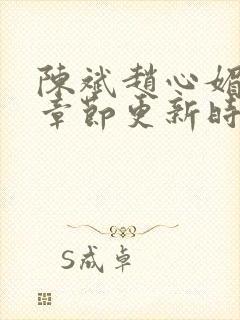 陳斌趙心媚
章節更新時
S成卓